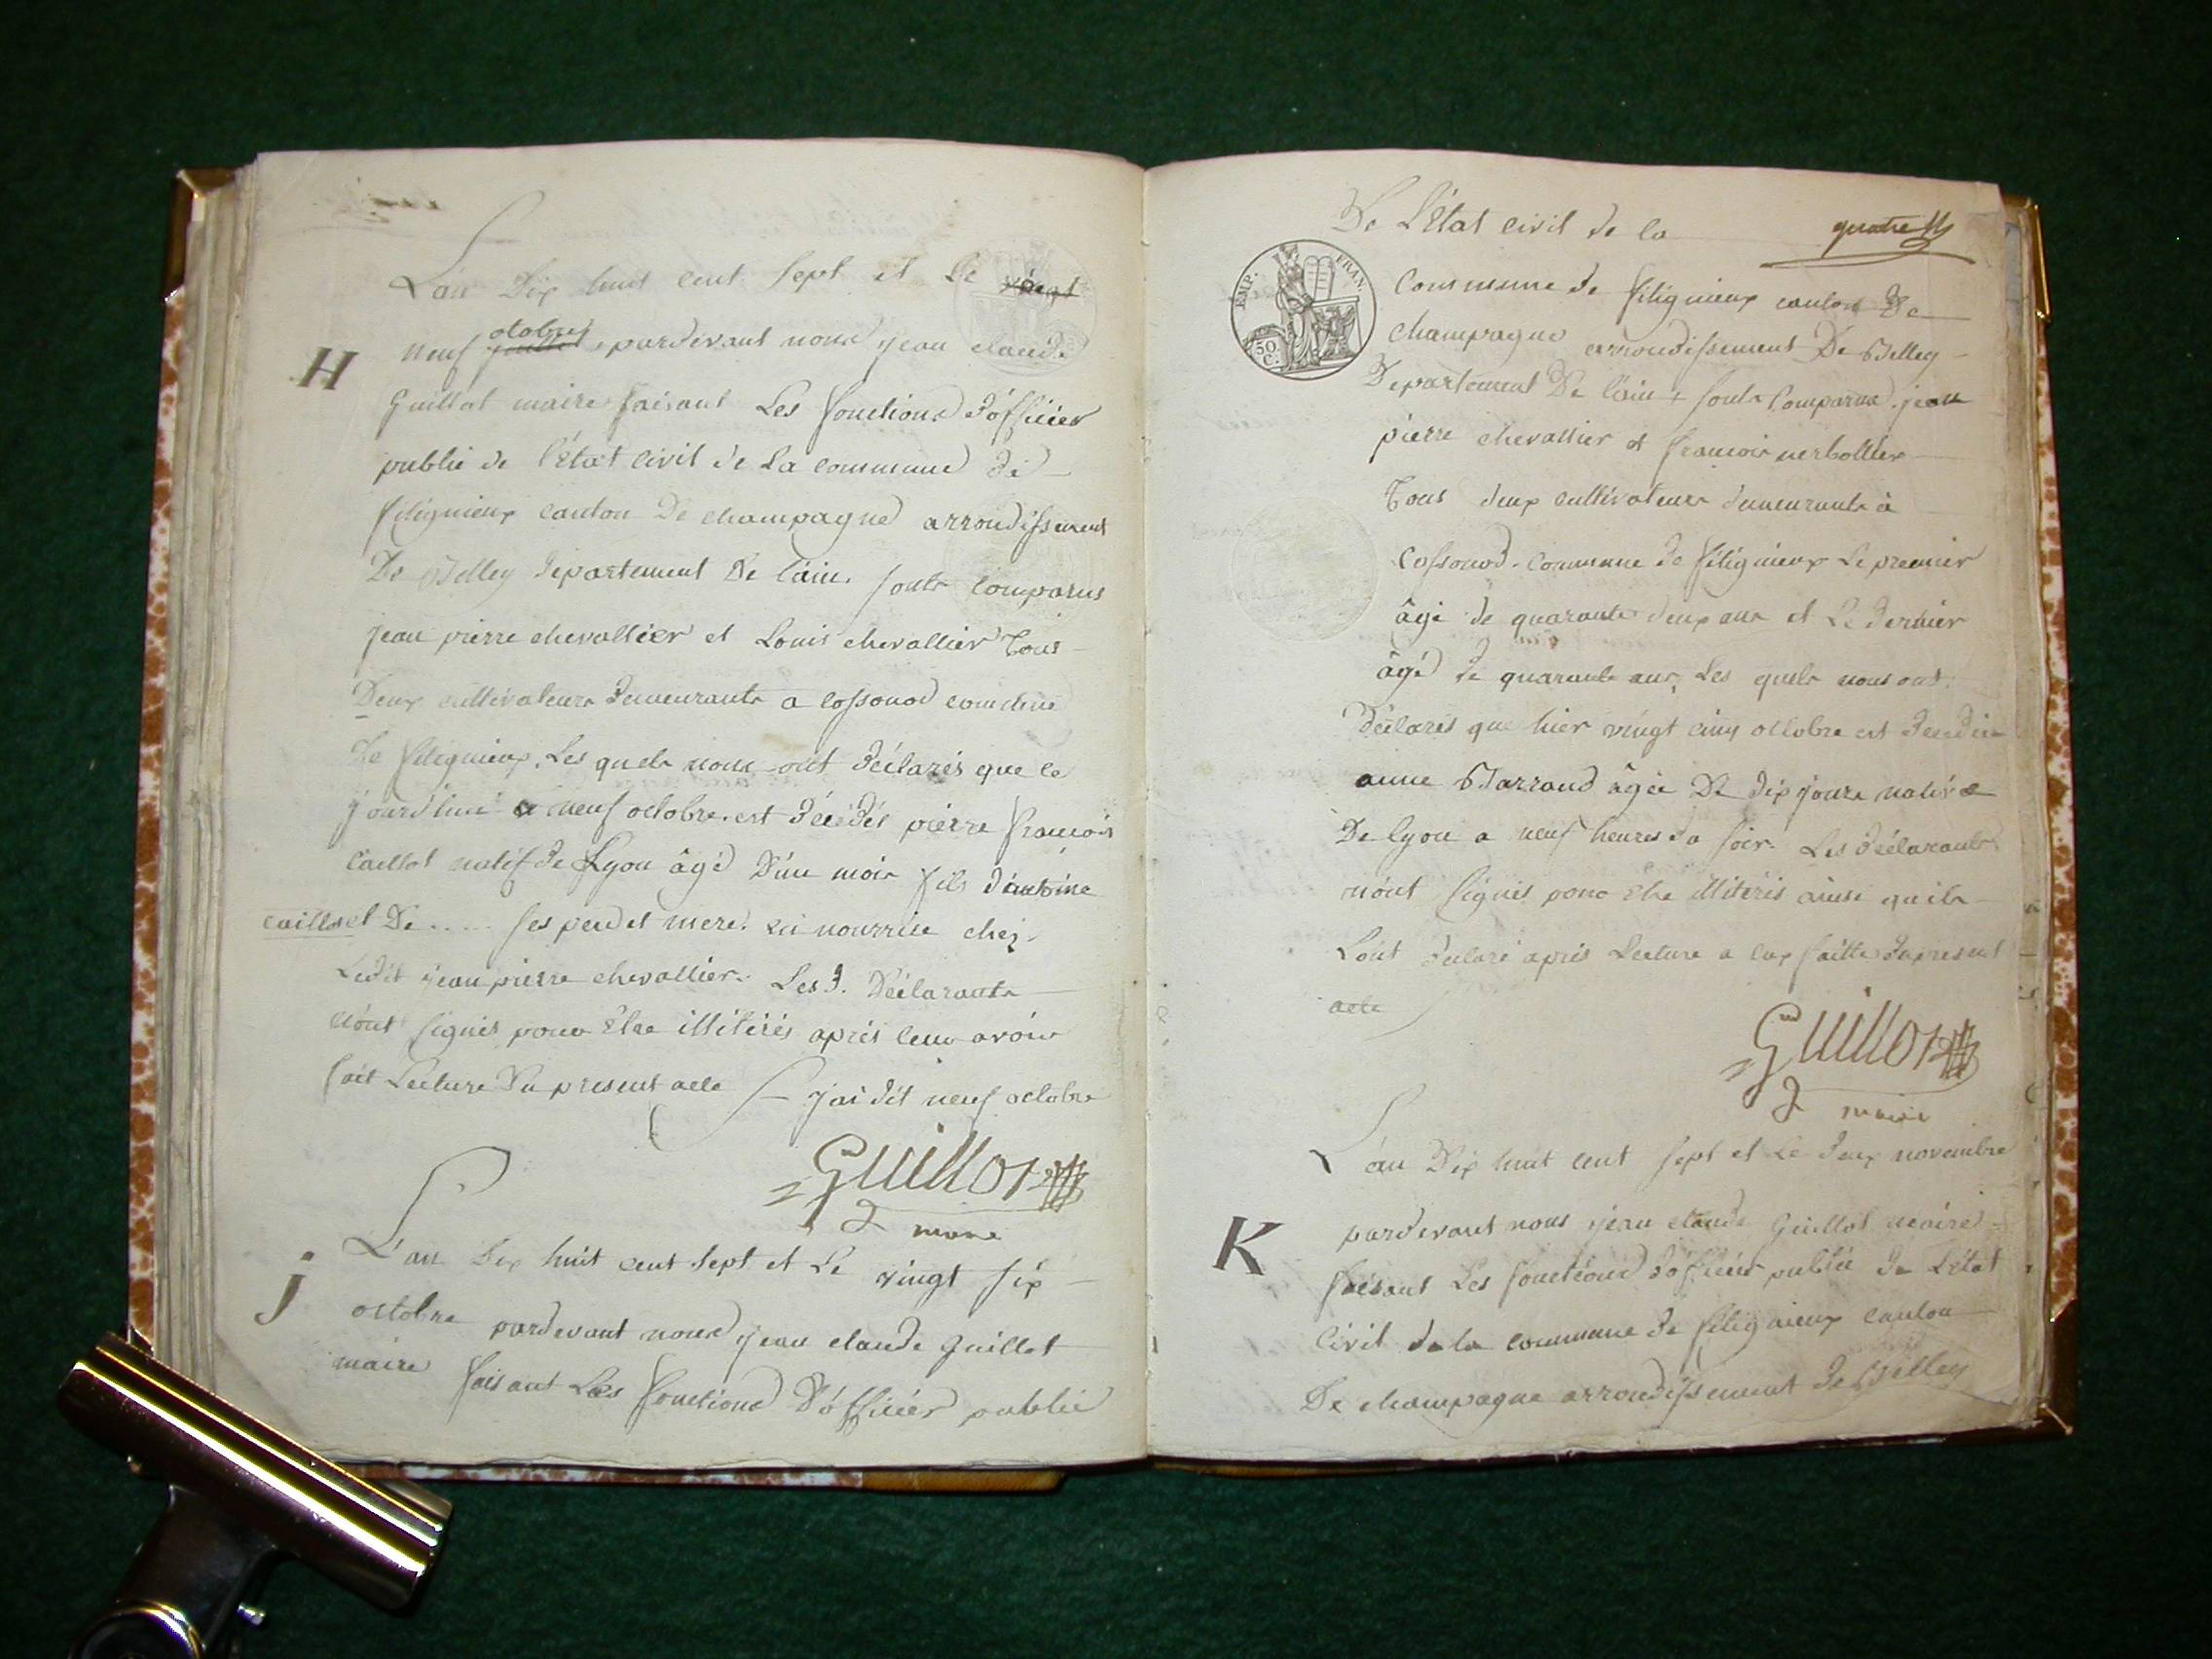 L'an Dix huit cent sept et le vingt
H
neuf juillet octobre pardevant nous jean claude
Guillot maire faisant Les fonctions d'officier
public de l'État civil de La commune de
fitignieux canton De champagne arrondissement
De Belley departement De l'ain. sonts comparus
jean pierre chevallier et Louis chevallier Tous
Deux cultivateurs demeurants a cossonod commune
De fitignieux. Les quels nous ont déclarés que ce
jourd'hui neuf octobre. est décédés pierre francois
caillot natif de Lyon âgé D'un mois fils d'antoine
caillot et De ..... ses pere et mere. en nourrice chez
Ledit jean pierre chevallier. Les d. Déclarants
n'ont signés pour Etre illiterés aprés leur avoir
fait Lecture Du present acte j'ai dit neuf octobre
Guillot
maire
L'an Dix huit cent sept et Le vingt six
j
octobre pardevant nous jean claude Guillot
maire faisant Les fonctions D'officier public
De L'État civil de la
quatre
EMP. FRAN.
50 C.
commune de fitignieux canton De
champagne arrondissement De Belley
Departement De l'ain sonts Comparus. jean
pierre chevallier et francois nerbollier
Tous deux cultivateurs demeurants à
cossonod. commune de fitignieux Le premier
âgé de quarante deux ans et Le dernier
âgé de quarante ans, Les quels nous ont
Déclarés que hier vingt cinq octobre est decedée
anne Barraud âgée De dix jours native
De lyon a neuf heures du soir. Les déclarants
n'ont signés pour Etre illiterés ainsi qu'ils
L'ont declaré aprés Lecture a eux faitte du present
acte
Guillot
maire
L'an Dix huit cent sept et Le deux novembre
K
pardevant nous jean claude Guillot maire
faisant Les fonctions d'officier public De L'état
Civil de la commune de fitignieux canton
De champagne arrondissement de Belley